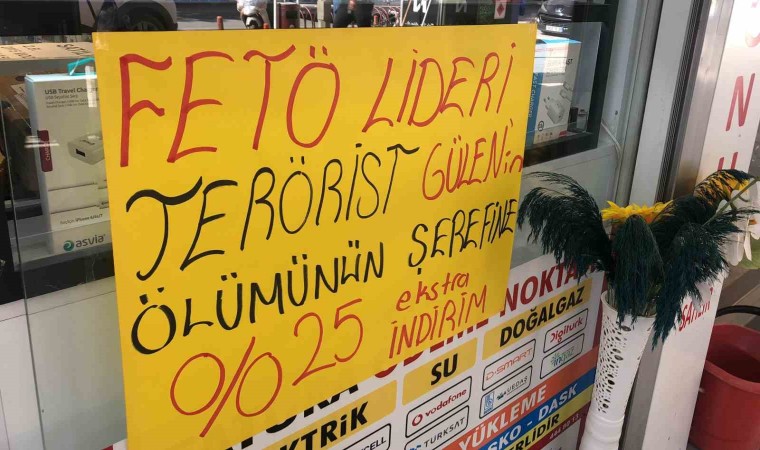 FETÖ LİDERİ
TERÖRİST GÜLEN'in
ÖLÜMÜNÜN ŞEREFİNE
%25 ekstra
İNDİRİM
USB Travel Charger
asvia
NOKTA
SU
DOĞALGAZ
vodafone
TURKSAT
D-SMART
Digiturk
YÜKLEME
DASK